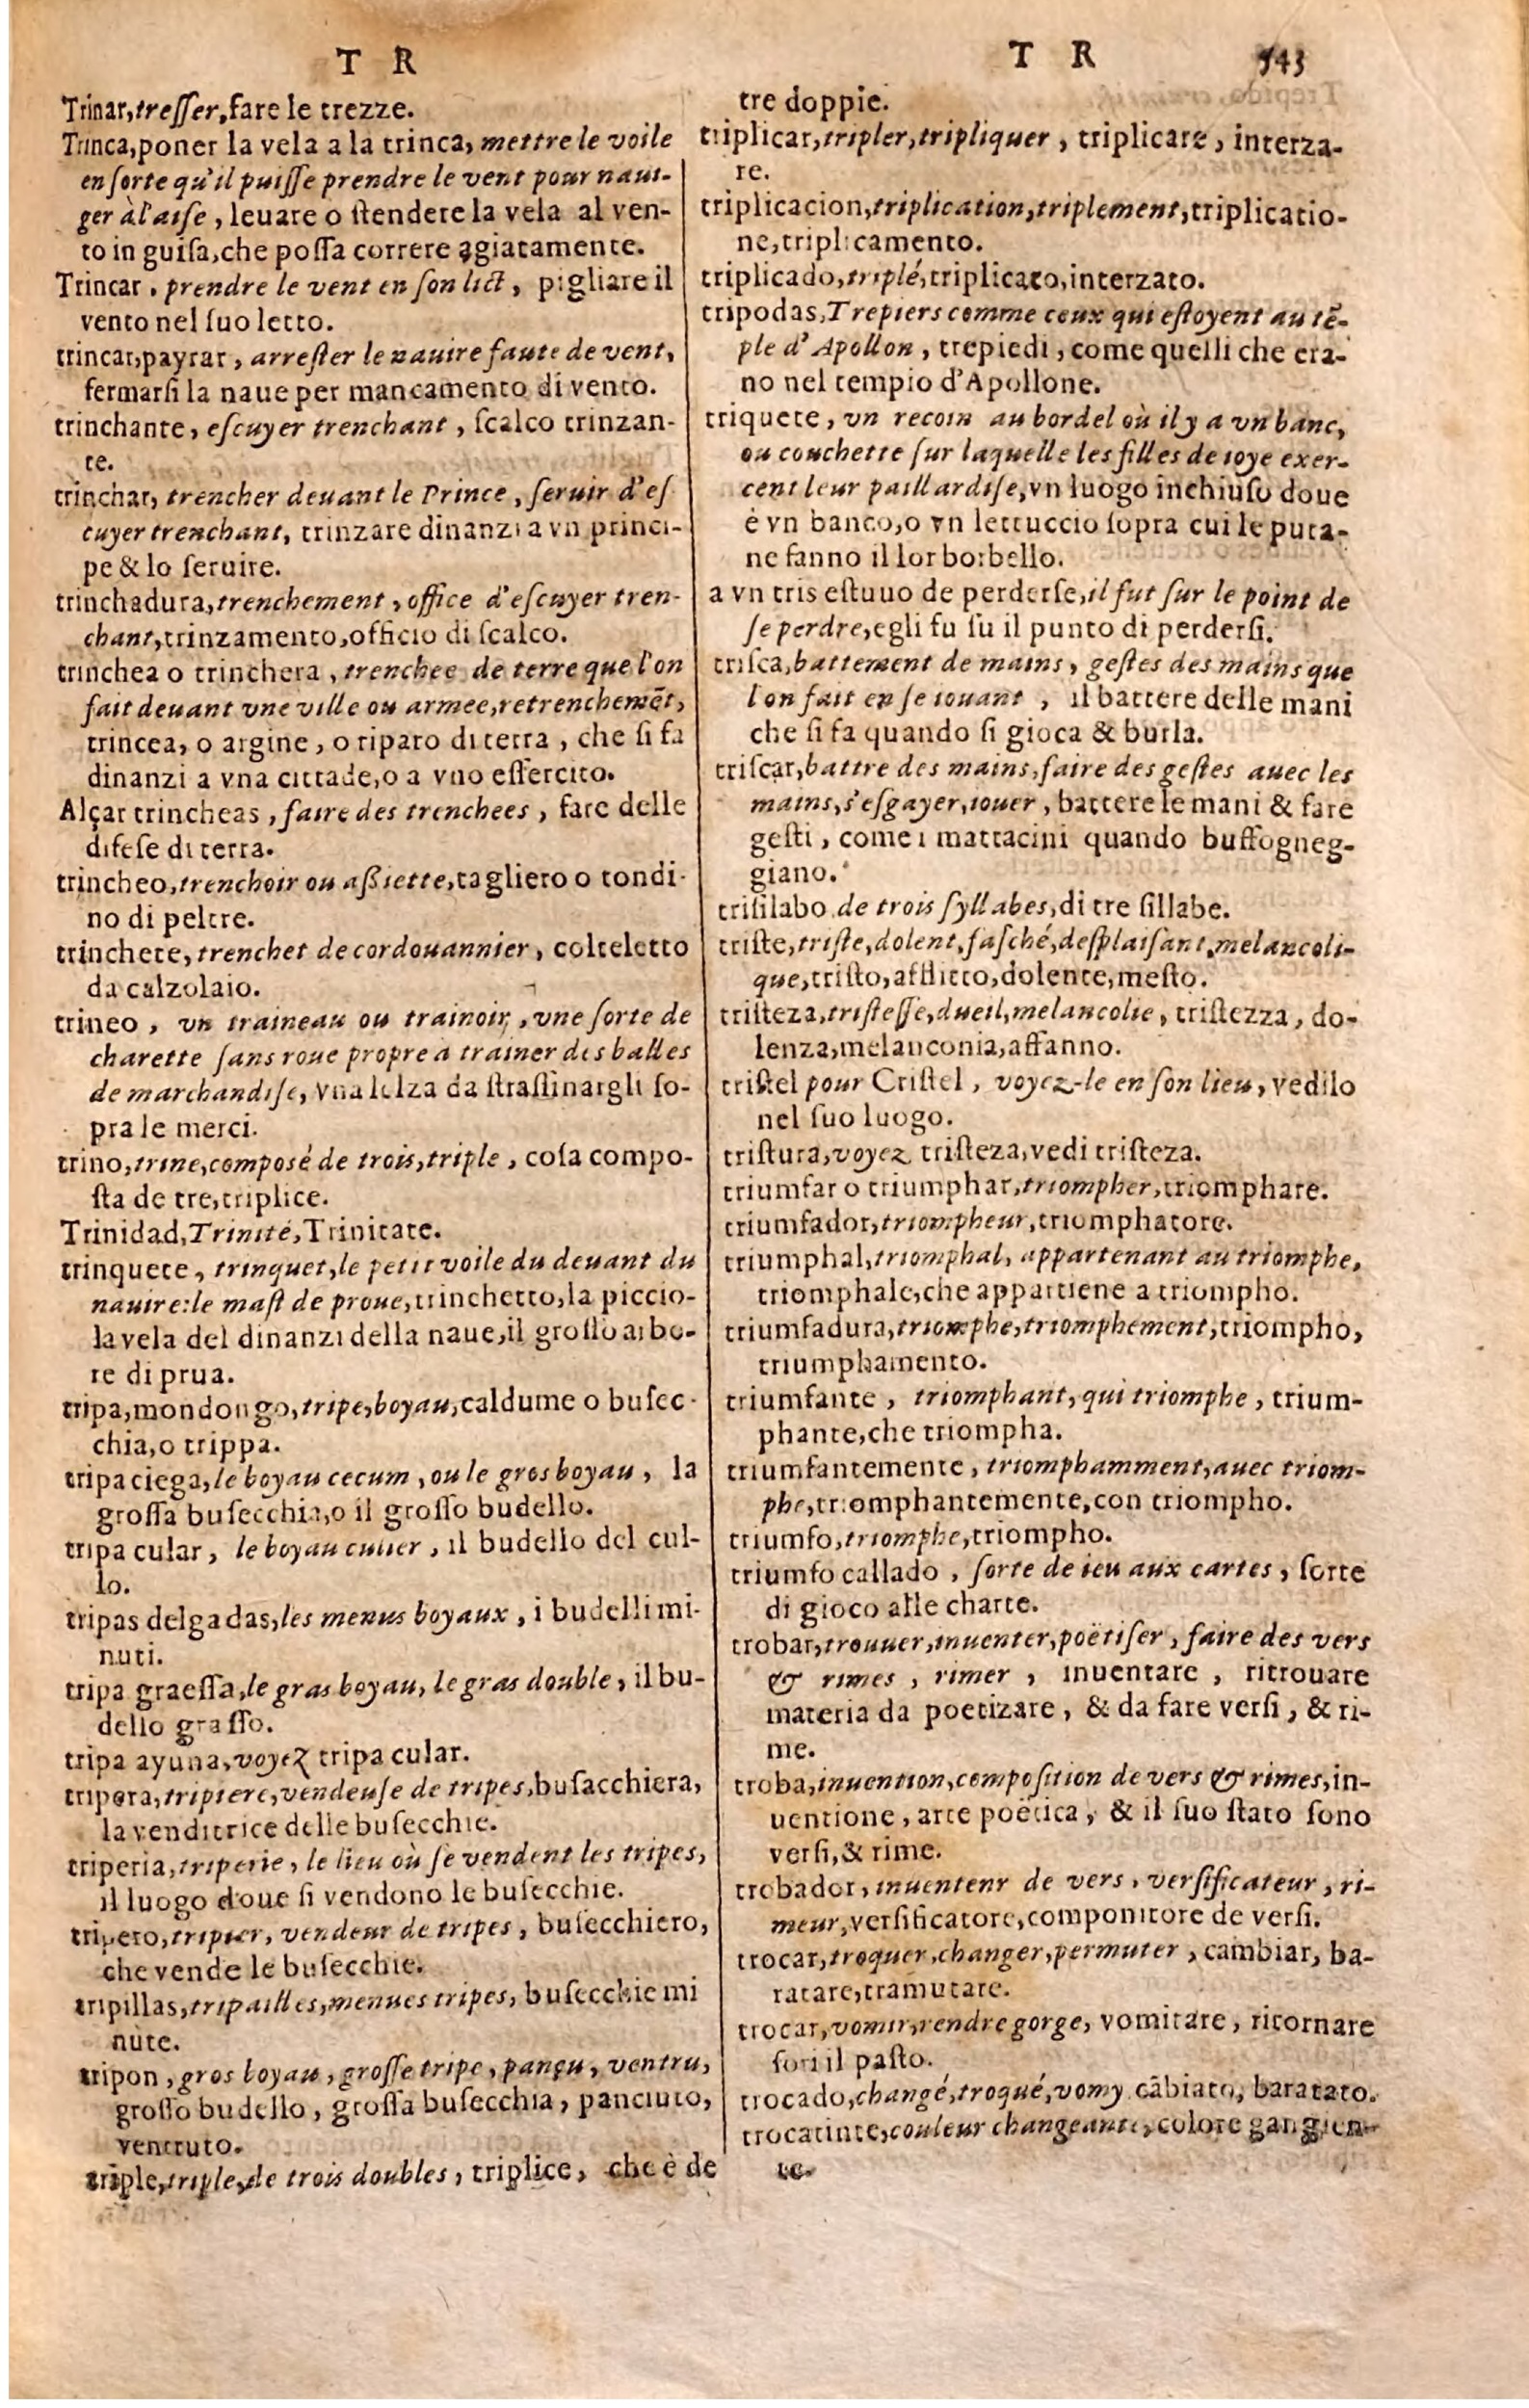 T R
Trinar,tresser,fare le trezze.
Trinca,poner la vela a la trinca, mettre le voile
en sorte qu'il puisse prendre le vent pour naui-
ger à l'aise, leuare o stendere la vela al ven-
to in guisa,che possa correre agiatamente.
Trincar, prendre le vent en son lict, pigliare il
vento nel suo letto.
trincar,payrar, arrester le nauire faute de vent,
fermarsi la naue per mancamento di vento.
trinchante, escuyer trenchant, scalco trinzan-
te.
trinchar, trencher deuant le Prince, seruir d'es
cuyer trenchant, trinzare dinanzi a vn princi-
pe & lo seruire.
trinchadura,trenchement, office d'escuyer tren-
chant,trinzamento,officio di scalco.
trinchea o trinchera, trenchee de terre que l'on
fait deuant vne ville ou armee,retrenchemēt,
trincea, o argine, o riparo di terra, che si fa
dinanzi a vna cittade,o a vno essercito.
Alçar trincheas, faire des trenchees, fare delle
difese di terra.
trincheo,trenchoir ou assiette,tagliero o tondi-
no di peltre.
trinchete, trenchet de cordouannier, colteletto
da calzolaio.
trineo, vn traineau ou trainoir, vne sorte de
charette sans roue propre a trainer des balles
de marchandise, vna lelza da strassinargli so-
pra le merci.
trino,trine,composé de trois,triple, cosa compo-
sta de tre,triplice.
Trinidad,Trinité,Trinitate.
trinquete, trinquet,le petit voile du deuant du
nauire:le mast de proue,trinchetto,la piccio-
la vela del dinanzi della naue,il grosso arbo-
re di prua.
tripa,mondongo,tripe,boyau,caldume o busec-
chia,o trippa.
tripa ciega,le boyau cecum, ou le gros boyau, la
grossa busecchia,o il grosso budello.
tripa cular, le boyau culier, il budello del cul-
lo.
tripas delgadas,les menus boyaux, i budelli mi-
nuti.
tripa graessa,le gras boyau, le gras double, il bu-
dello grasso.
tripa ayuna,voyez tripa cular.
tripera,tripiere,vendeuse de tripes,busacchiera,
la venditrice delle busecchie.
triperia,triperie, le lieu où se vendent les tripes,
il luogo doue si vendono le busecchie.
tripero,tripier, vendeur de tripes, busecchiero,
che vende le busecchie.
tripillas,tripailles,menues tripes, busecchie mi
nute.
tripon, gros boyau, grosse tripe, pançu, ventru,
grosso budello, grossa busecchia, panciuto,
ventruto.
triple,triple,de trois doubles, triplice, che è de
T R 543
tre doppie.
triplicar,tripler,tripliquer, triplicare, interza-
re.
triplicacion,triplication,triplement,triplicatio-
ne,triplicamento.
triplicado,triplé,triplicato,interzato.
tripodas,Trepiers comme ceux qui estoyent au tē-
ple d'Apollon, trepiedi, come quelli che era-
no nel tempio d'Apollone.
triquete, vn recoin au bordel où il y a vn banc,
ou couchette sur laquelle les filles de ioye exer-
cent leur paillardise,vn luogo inchiuso doue
è vn banco,o vn lettuccio sopra cui le puta-
ne fanno il lor borbello.
a vn tris estuuo de perderse,il fut sur le point de
se perdre,egli fu su il punto di perdersi.
trisca,battement de mains, gestes des mains que
l'on fait en se iouant, il battere delle mani
che si fa quando si gioca & burla.
triscar,battre des mains,faire des gestes auec les
mains,s'esgayer,iouer, battere le mani & fare
gesti, come i mattacini quando buffogneg-
giano.
trisilabo de trois syllabes,di tre sillabe.
triste,triste,dolent,fasché,desplaisant,melancoli-
que,tristo,afflitto,dolente,mesto.
tristeza,tristesse,dueil,melancolie, tristezza, do-
lenza,melanconia,affanno.
tristel pour Cristel, voyez-le en son lieu, vedilo
nel suo luogo.
tristura,voyez tristeza,vedi tristeza.
triumfar o triumphar,triompher,triomphare.
triumfador,triompheur,triomphatore.
triumphal,triomphal, appartenant au triomphe,
triomphale,che appartiene a triompho.
triumfadura,triomphe,triomphement,triompho,
triumphamento.
triumfante, triomphant, qui triomphe, trium-
phante,che triompha.
triumfantemente, triomphamment,auec triom-
phe,triomphantemente,con triompho.
triumfo,triomphe,triompho.
triumfo callado, sorte de ieu aux cartes, sorte
di gioco alle charte.
trobar,trouuer,inuenter,poëtiser, faire des vers
& rimes, rimer, inuentare, ritrouare
materia da poetizare, & da fare versi, & ri-
me.
troba,inuention,composition de vers & rimes,in-
uentione, arte poëtica, & il suo stato sono
versi,& rime.
trobador, inuentenr de vers, versificateur, ri-
meur,versificatore,componitore de versi.
trocar,troquer,changer,permuter, cambiar, ba-
ratare,tramutare.
trocar,vomir,rendre gorge, vomitare, ritornare
fori il pasto.
trocado,changé,troqué,vomy cābiato, baratato.
trocatinte,couleur changeante,colore gangien-
te.